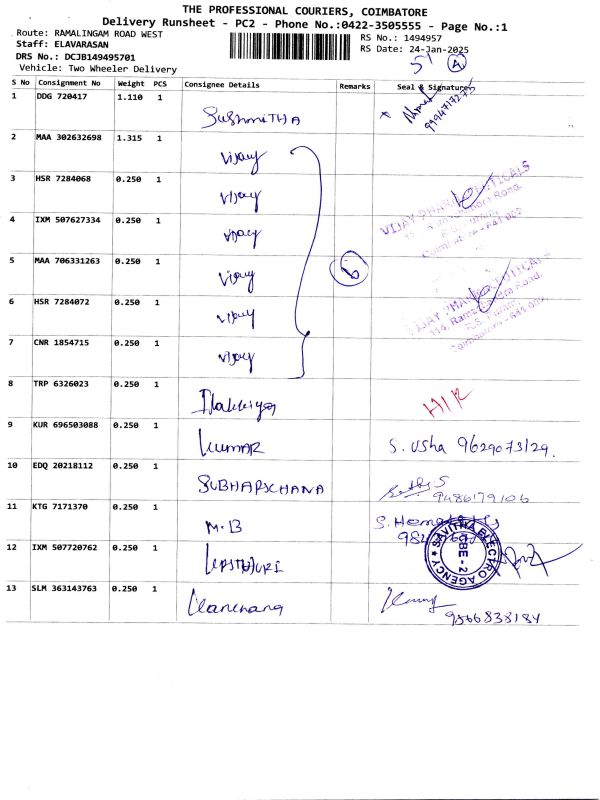 THE PROFESSIONAL COURIERS, COIMBATORE
Delivery Runsheet - PC2 - Phone No.:0422-3505555 - Page No.:1
Route: RAMALINGAM ROAD WEST
RS No.: 1494957
Staff: ELAVARASAN
RS Date: 24-Jan-2025
DRS No.: DCJB149495701
51 A
Vehicle: Two Wheeler Delivery
S No Consignment No Weight PCS Consignee Details Remarks Seal & Signature
1 DDG 720417 1.110 1 SUSHMITHA
2 MAA 302632698 1.315 1 Vijay
3 HSR 7284068 0.250 1 Vijay
VIJAY PHARMACEUTICALS
4 IXM 507627334 0.250 1 Vijay
5 MAA 706331263 0.250 1 Vijay 6
VIJAY PHARMACEUTICALS
6 HSR 7284072 0.250 1 Vijay
7 CNR 1854715 0.250 1 Vijay
8 TRP 6326023 0.250 1 Ilakkiya H/R
9 KUR 696503088 0.250 1 KUMAR S. Usha 9629073129.
10 EDQ 20218112 0.250 1 9486179106
11 KTG 7171370 0.250 1 M.B
SAVITHA ELECTRO AGENCY
CBE - 2
12 IXM 507720762 0.250 1
13 SLM 363143763 0.250 1 Kanchana
9566838184